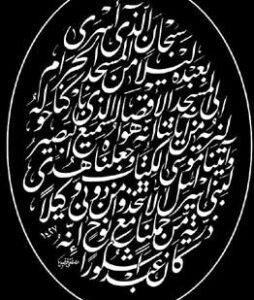 سبحان الذي أسرى
بعبده ليلا من المسجد الحرام
إلى المسجد الأقصا الذي باركنا حوله
لنريه من آياتنا إنه هو السميع البصير
وآتينا موسى الكتاب وجعلناه هدى
لبني إسرائيل ألا تتخذوا من دوني وكيلا
ذرية من حملنا مع نوح إنه
كان عبدا شكورا